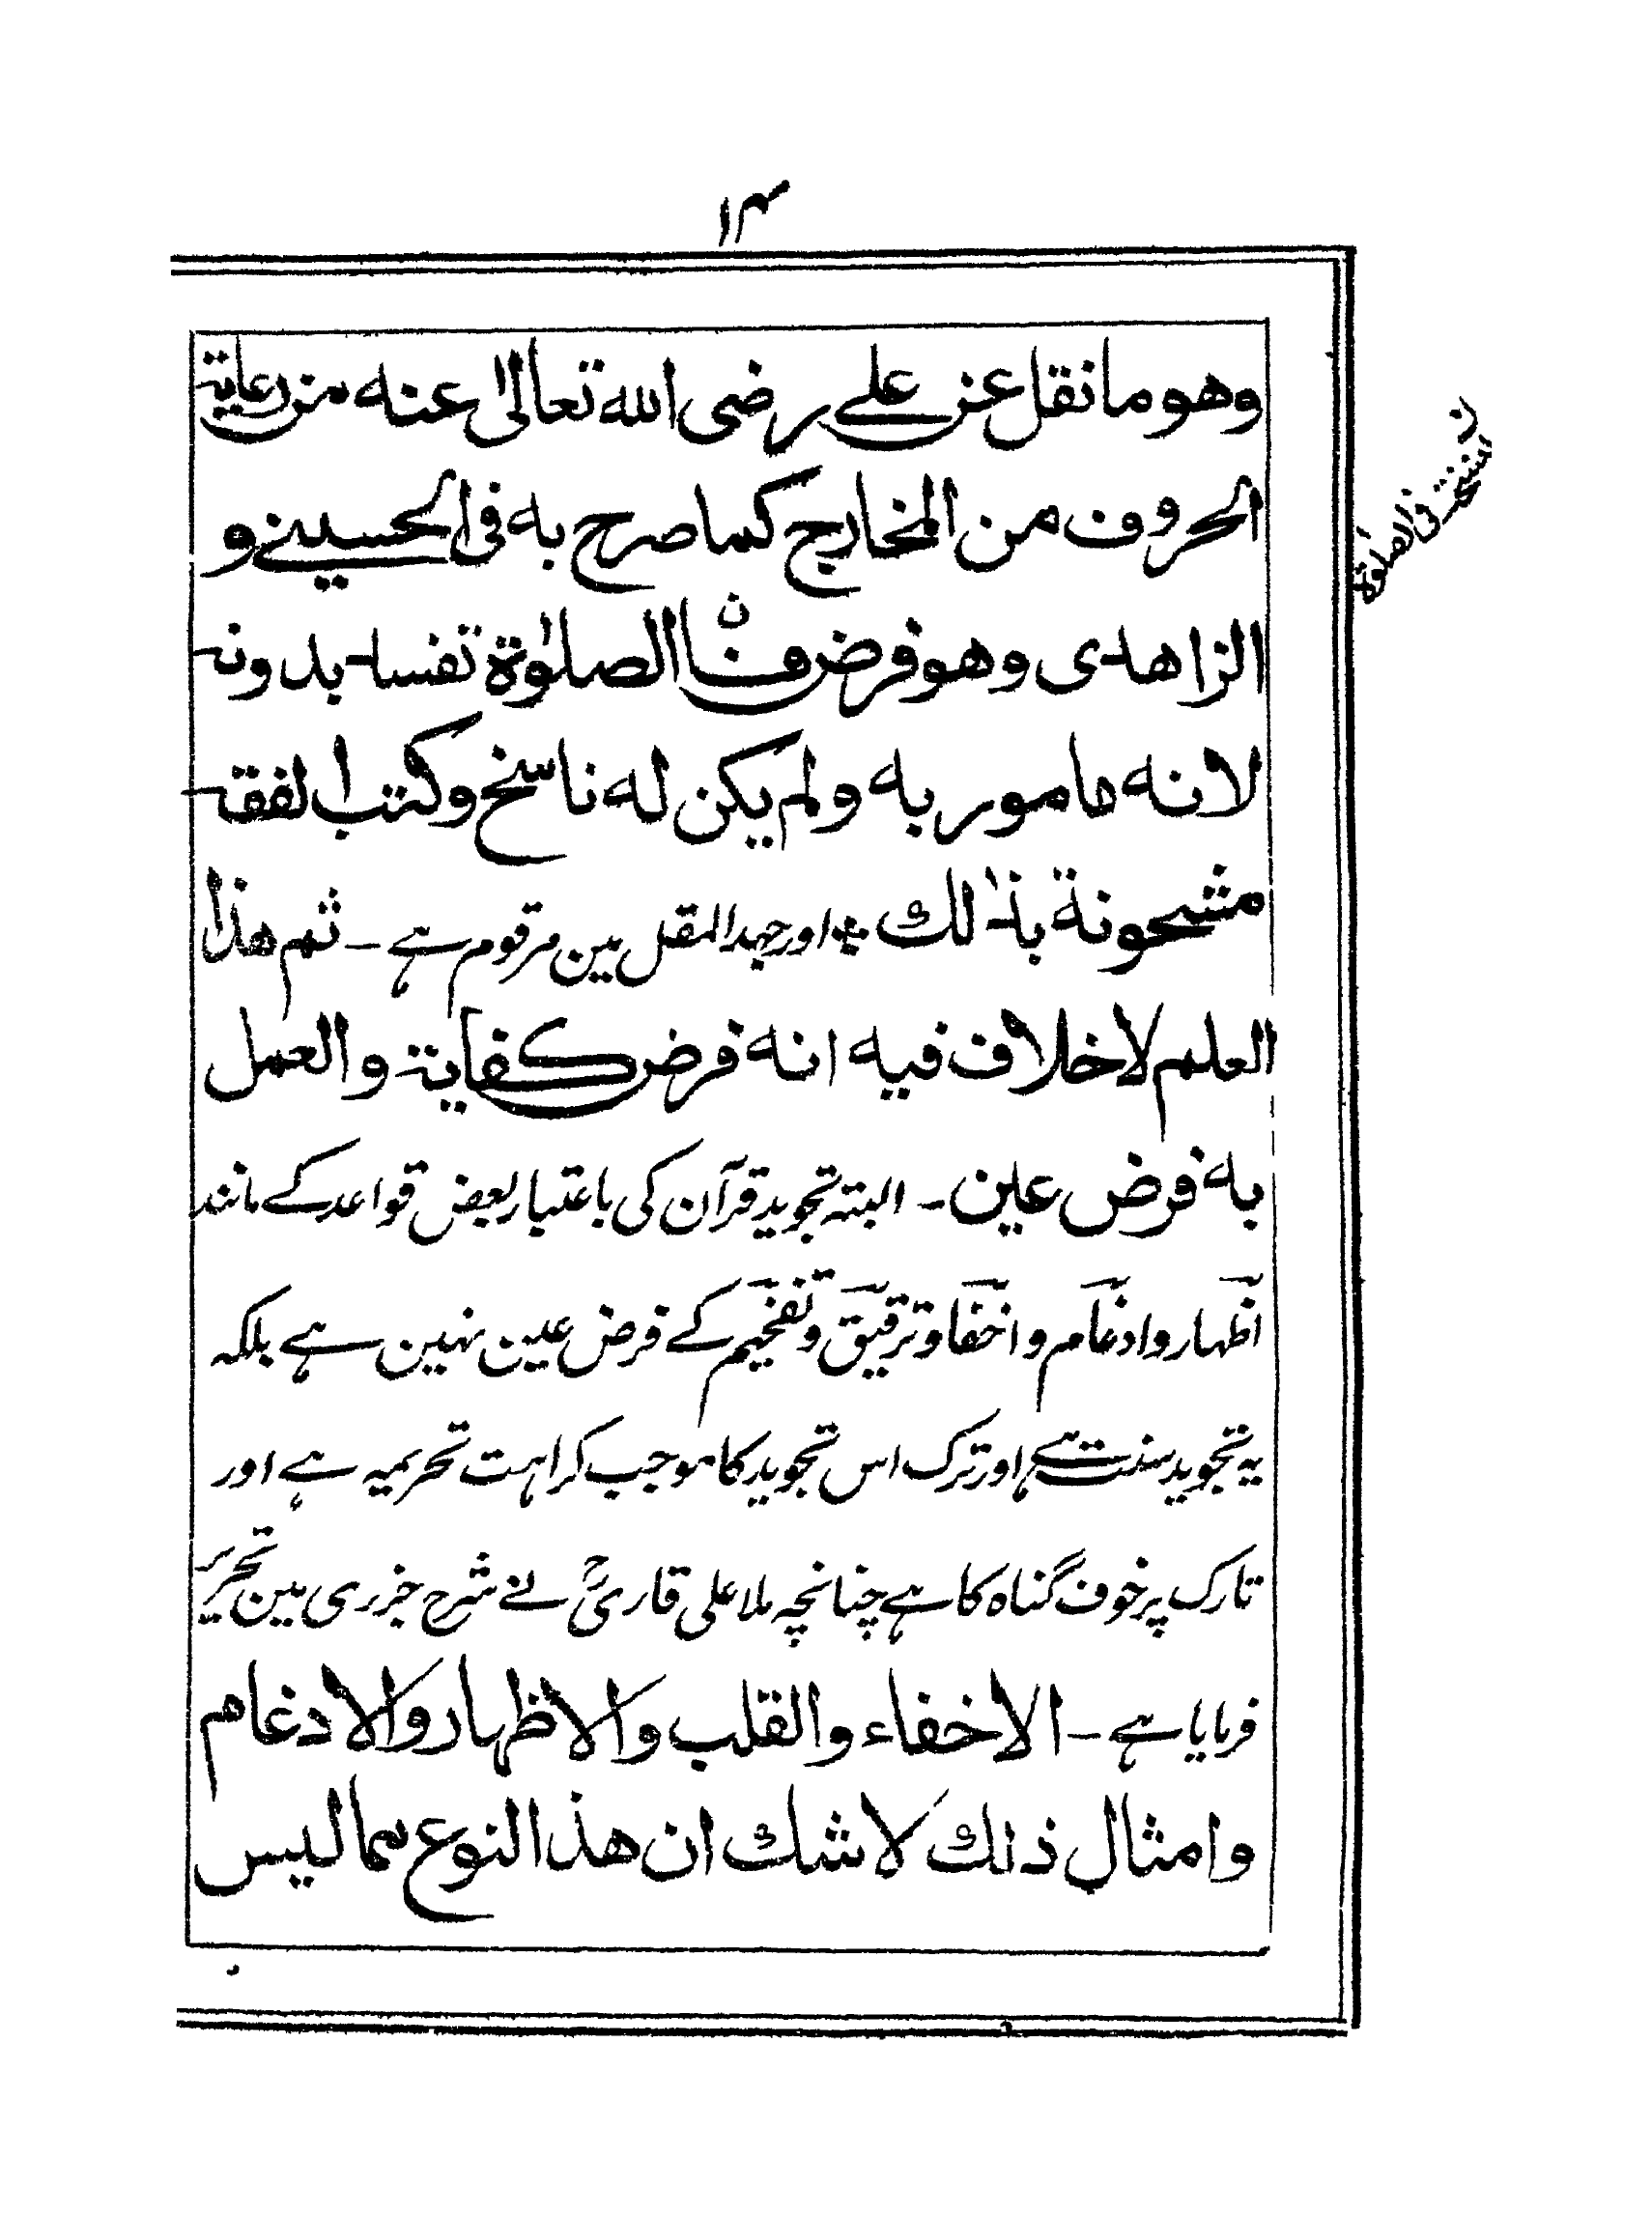 ۱۴
وهو ما نقل عن علی رضی الله تعالیٰ عنه من رعایة
الحروف من المخارج کما صرح به فی الحسینی و
الزاهدی وهو فرض فان الصلوٰة تفسد بدونه
لانه مامور به ولم یکن له ناسخ وکتب الفقه
مشحونة بذٰلك اور جہد المقل مین مرقوم ہے۔ ثم هذا
العلم لا خلاف فیه انه فرض کفایة والعمل
به فرض عین۔ البتہ تجوید قرآن کی باعتبار بعض قواعد کے مانند
اظہار وادغام و اخفا و ترقیق و تفخیم کے فرض عین نہین ہے بلکہ
یہ تجوید سنت ہے اور ترک اس تجوید کا موجب کراہت تحریمیہ ہے اور
تارک پر خوف گناہ کا ہے چنانچہ ملا علی قاریؒ نے شرح جزری مین تحریر
فرمایا ہے۔ الاخفاء والقلب والاظهار والادغام
وامثال ذلك لا شك ان هذا النوع مما لیس
فی الصلوٰة